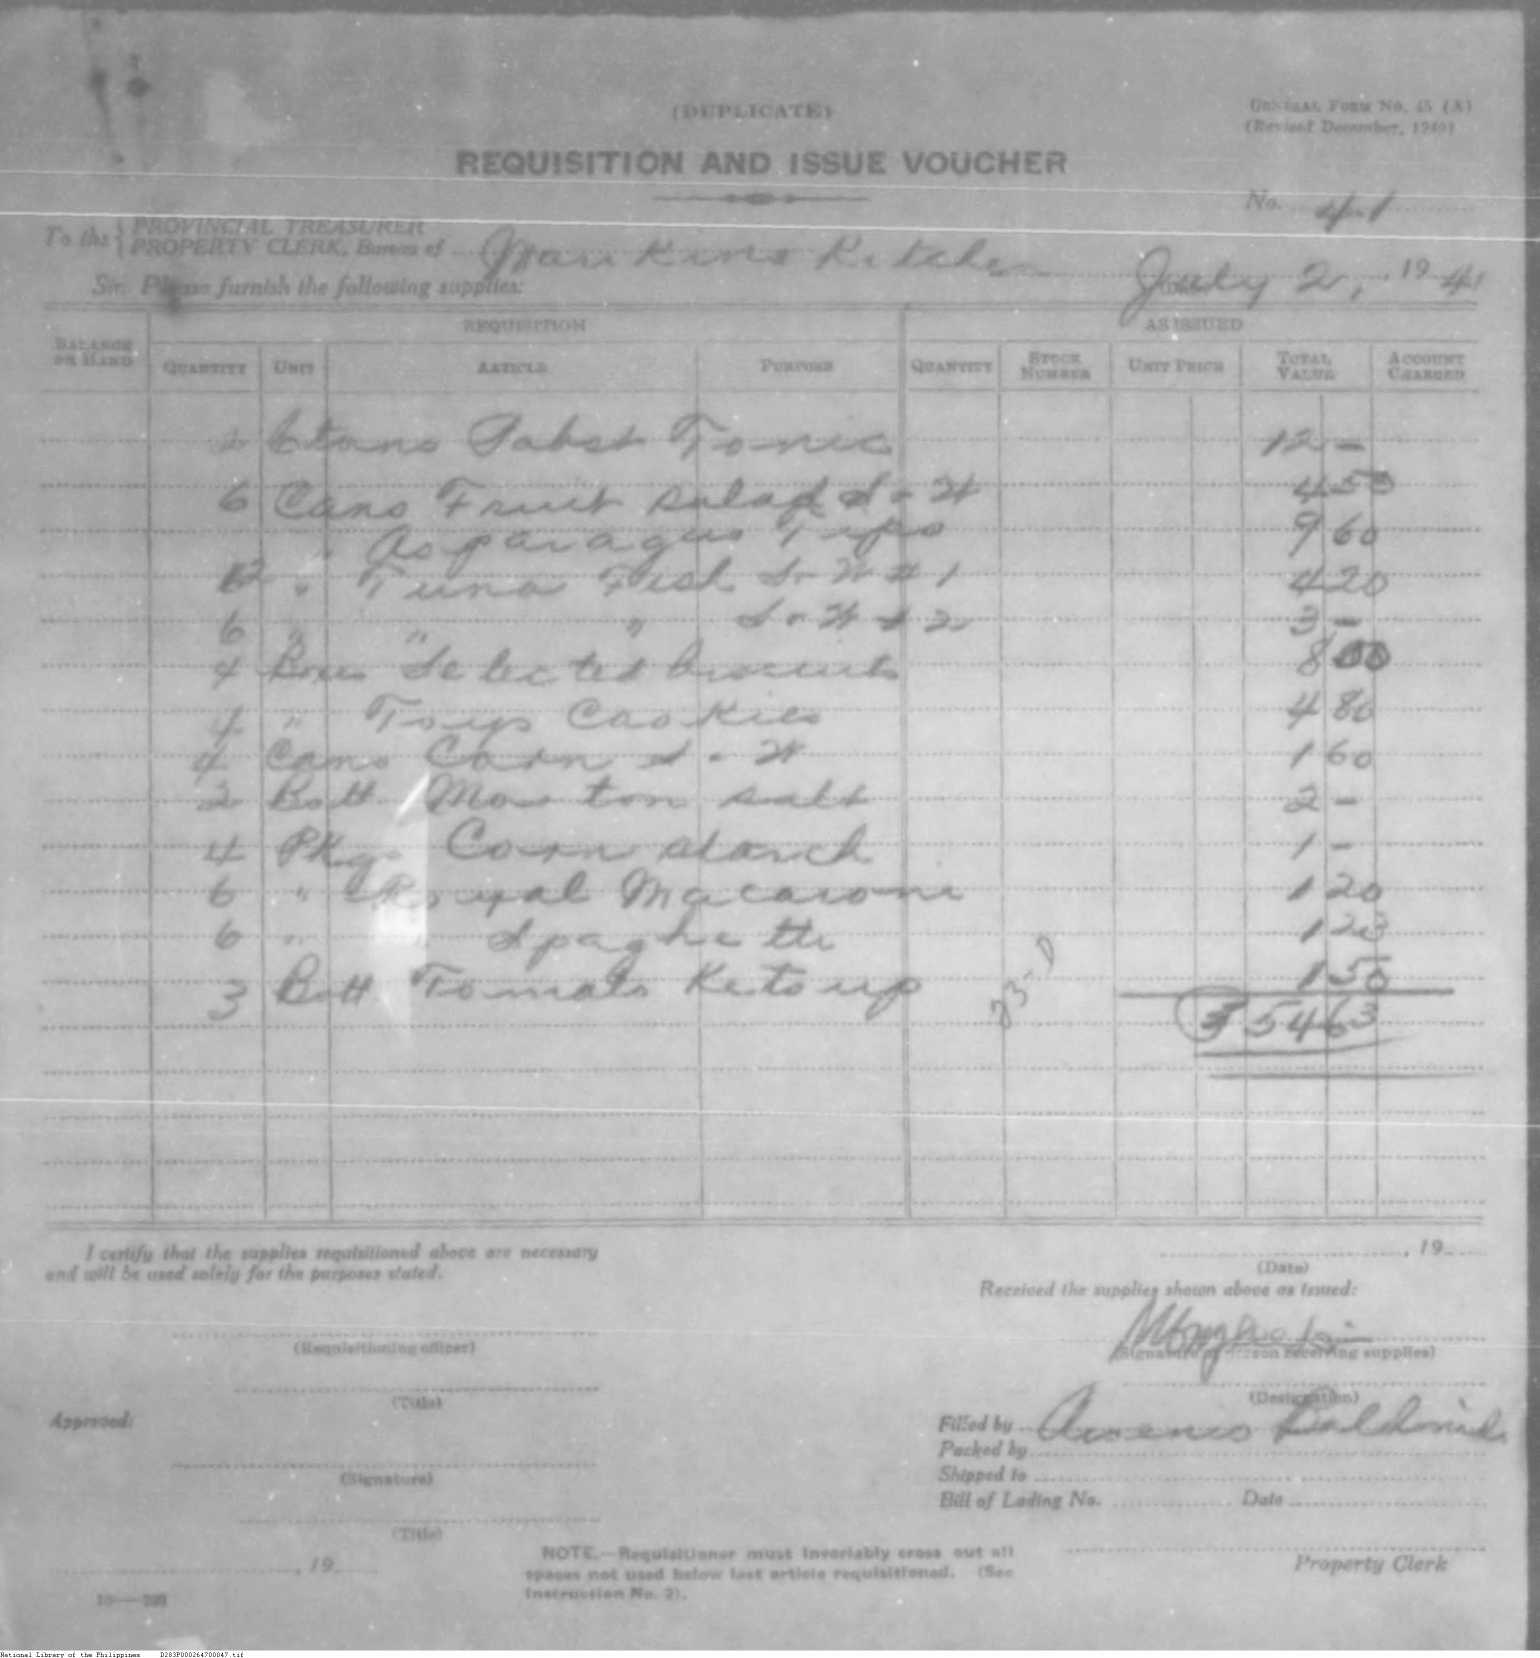 (DUPLICATE)
GENERAL FORM No. 45 (A)
(Revised December, 1940)
REQUISITION AND ISSUE VOUCHER
No. 41
To the { PROVINCIAL TREASURER
PROPERTY CLERK, Bureau of Kitchen
July 2, 1941
Sir: Please furnish the following supplies:
REQUISITION AS ISSUED
BALANCE ON HAND QUANTITY UNIT ARTICLE PURPOSE QUANTITY STOCK NUMBER UNIT PRICE TOTAL VALUE ACCOUNT CHARGED
2 Pabst Tonic 12 -
6 Cans Fruit Salad S-W 4 50
" Asparagus Tips 9 60
12 " Tuna Fish S-W # 1 4 20
6 " " " S-W # 2 3 -
4 Boxes Selected biscuits 8 00
4 " Toys Cookies 4 80
4 Cans Corn S-W 1 60
2 Bott Morton salt 2 -
4 Pkgs Corn starch 1 -
6 " Royal Macaroni 1 20
6 " " Spaghetti 1 23
3 Bott Tomato Ketsup 1 50
₱ 54 63
I certify that the supplies requisitioned above are necessary
and will be used solely for the purposes stated.
, 19
(Date)
Received the supplies shown above as issued:
(Requisitioning officer)
(Signature of person receiving supplies)
(Title)
(Designation)
Approved:
Filled by
Packed by
(Signature)
Shipped to
Bill of Lading No. Date
(Title)
, 19
NOTE.—Requisitioner must invariably cross out all
spaces not used below last article requisitioned. (See
Instruction No. 2).
Property Clerk
National Library of the Philippines D283P000264700047.tif